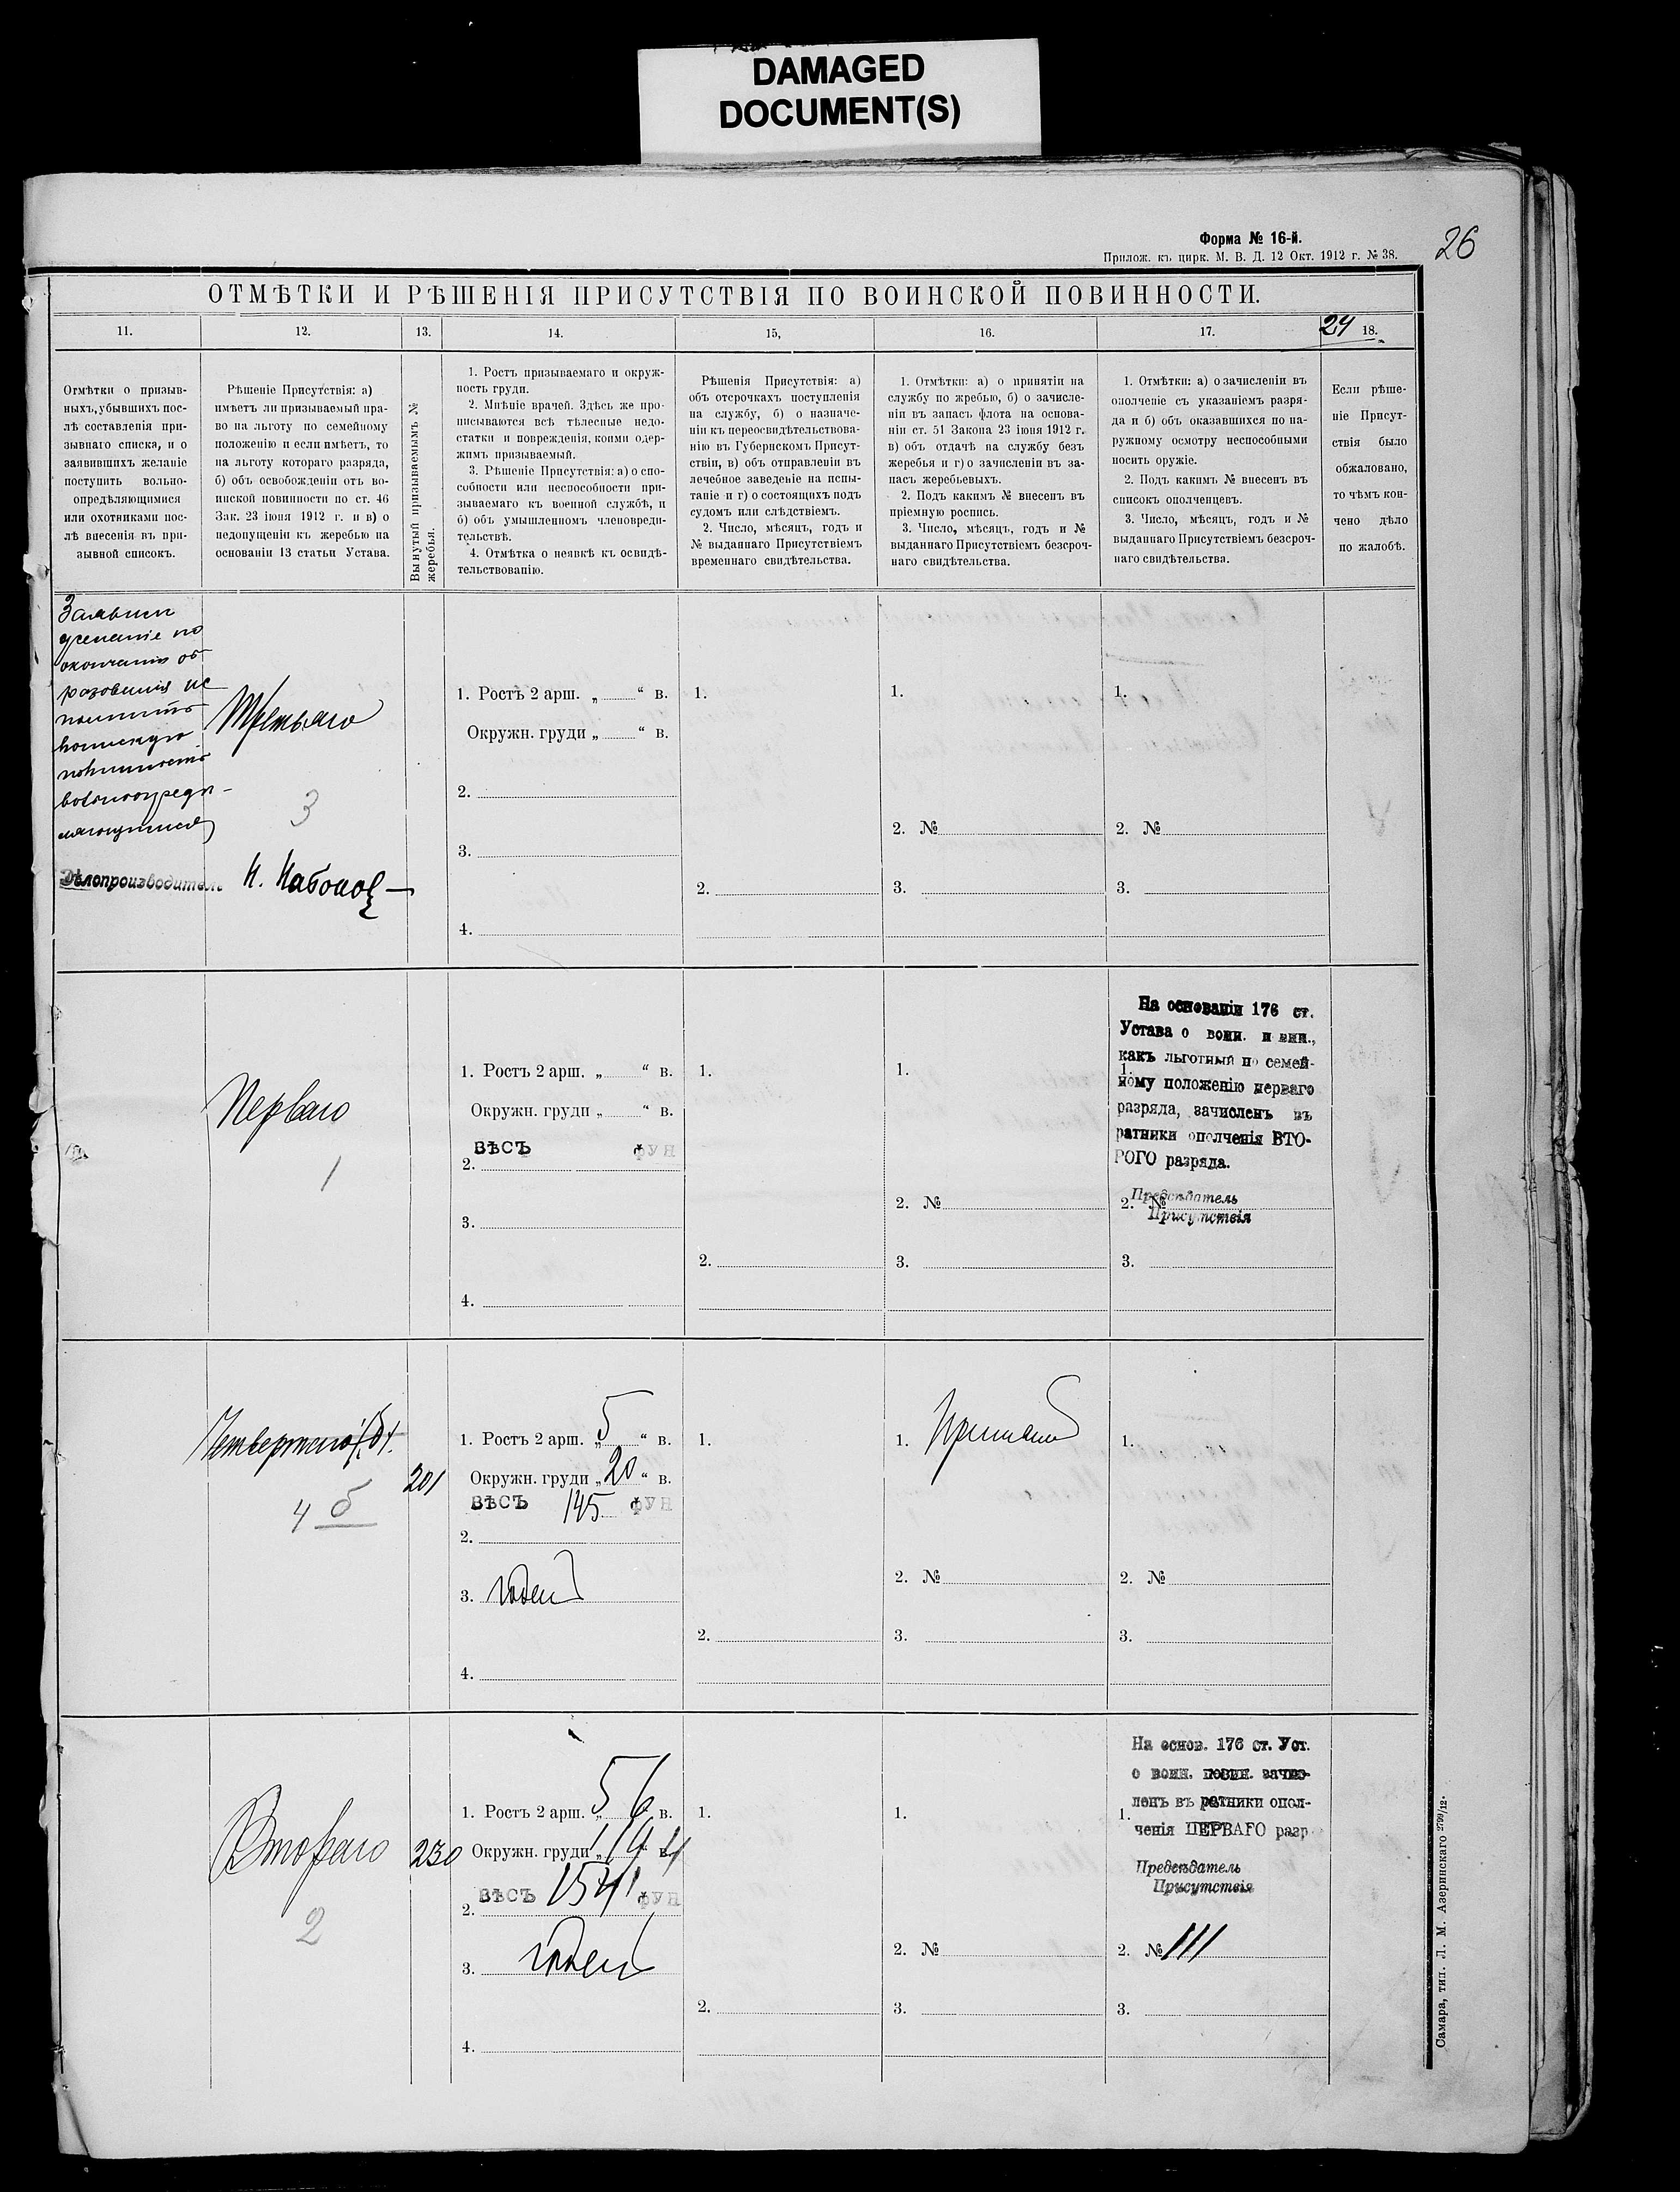 DAMAGED
DOCUMENT(S)
Форма № 16-й.
Прилож. къ цирк. М. В. Д. 12 Окт. 1912 г. № 38.
26
ОТМѢТКИ И РѢШЕНІЯ ПРИСУТСТВІЯ ПО ВОИНСКОЙ ПОВИННОСТИ.
11.
12.
13.
14.
15,
16.
17.
24 18.
Отмѣтки о призыв-
ныхъ, убывшихъ пос-
лѣ составленія при-
зывнаго списка, и о
заявившихъ желаніе
поступить вольно-
опредѣляющимися
или охотниками пос-
лѣ внесенія въ при-
зывной списокъ.
Рѣшеніе Присутствія: а)
имѣетъ ли призываемый пра-
во на льготу по семейному
положенію и если имѣетъ, то
на льготу котораго разряда,
б) объ освобожденіи отъ во-
инской повинности по ст. 46
Зак. 23 іюня 1912 г. и в) о
недопущеніи къ жеребью на
основаніи 13 статьи Устава.
Вынутый призываемымъ №
жеребья.
1. Ростъ призываемаго и окруж-
ность груди.
2. Мнѣніе врачей. Здѣсь же про-
писываются всѣ тѣлесные недо-
статки и поврежденія, коими одер-
жимъ призываемый.
3. Рѣшеніе Присутствія: а) о спо-
собности или неспособности при-
зываемаго къ военной службѣ, и
б) объ умышленномъ членовреди-
тельствѣ.
4. Отмѣтка о неявкѣ къ освидѣ-
тельствованію.
Рѣшенія Присутствія: а)
объ отсрочкахъ поступленія
на службу, б) о назначе-
ніи къ переосвидѣтельствова-
нію въ Губернскомъ Присут-
ствіи, в) объ отправленіи въ
лечебное заведеніе на испы-
таніе и г) о состоящихъ подъ
судомъ или слѣдствіемъ.
2. Число, мѣсяцъ, годъ и
№ выданнаго Присутствіемъ
временнаго свидѣтельства.
1. Отмѣтки: а) о принятіи на
службу по жребью, б) о зачисле-
ніи въ запасъ флота на основа-
ніи ст. 51 Закона 23 іюня 1912 г.
в) объ отдачѣ на службу безъ
жеребья и г) о зачисленіи въ за-
пасъ жеребьевыхъ.
2. Подъ какимъ № внесенъ въ
пріемную роспись.
3. Число, мѣсяцъ, годъ и №
выданнаго Присутствіемъ безсроч-
наго свидѣтельства.
1. Отмѣтки: а) о зачисленіи въ
ополченіе съ указаніемъ разря-
да и б) объ оказавшихся по на-
ружному осмотру неспособными
носить оружіе.
2. Подъ какимъ № внесенъ въ
списокъ ополченцевъ.
3. Число, мѣсяцъ, годъ и №
выданнаго Присутствіемъ безсроч-
наго свидѣтельства.
Если рѣше-
ніе Присут-
ствія было
обжаловано,
то чѣмъ кон-
чено дѣло
по жалобѣ.
Заявилъ
желаніе по
окончаніи об-
разованія ис
полнить
воинскую
повинность
вольноопредѣ-
ляющимся
Дѣлопроизводитель
Третьяго
3
1. Ростъ 2 арш. „ “ в.
Окружн. груди „ “ в.
2.
3.
4.
1.
2.
1.
2. №
3.
1.
2. №
3.
Перваго
1
1. Ростъ 2 арш. „ “ в.
Окружн. груди „ “ в.
ВѢСЪ ФУН
2.
3.
4.
1.
2.
1.
2. №
3.
На основаніи 176 ст.
Устава о воин. п вин.,
какъ льготный по семей-
1.
ному положенію перваго
разряда, зачисленъ въ
ратники ополченія ВТО-
РОГО разряда.
Предсѣдатель
2. №
Присутствія
3.
Четвертаго „б“.
4 б
201
1. Ростъ 2 арш. „ 5 “ в.
Окружн. груди „ 20 “ в.
ВѢСЪ 145 ФУН
2.
3. годенъ
4.
1.
2.
1. Принятъ
2. №
3.
1.
2. №
3.
Второго
2
230
1. Ростъ 2 арш. „ 5 6 в.
Окружн. груди „ 19 4 в.
ВѢСЪ 154 ФУН
2.
3. годенъ
4.
1.
2.
1.
2. №
3.
На основ. 176 ст. Уст.
о воин. повин. зачис-
ленъ въ ратники опол-
1.
ченія ПЕРВАГО разр
Предсѣдатель
Присутствія
2. № 111
3.
Самара, тип. Л. М. Азеринскаго 2799/12.